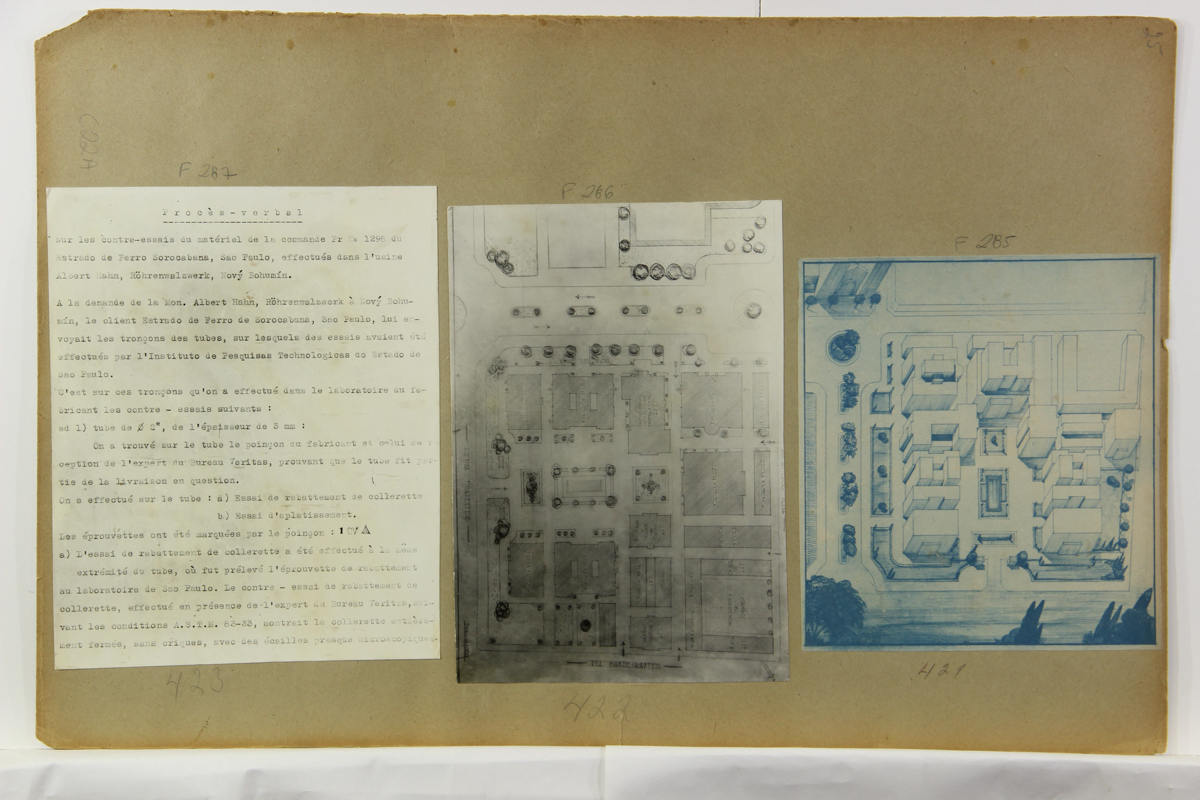 25
C22A
F 287
Procès-verbal
sur les contre-essais du matériel de la commande Fr N. 1296 du
Estrado de Ferro Sorocabana, Sao Paulo, effectués dans l'usine
Albert Hahn, Röhrenwalzwerk, Nový Bohumín.
A la demande de la Mon. Albert Hahn, Röhrenwalzwerk à Nový Bohu-
mín, le client Estrado de Ferro de Sorocabana, Sao Paulo, lui en-
voyait les tronçons des tubes, sur lesquels des essais avaient été
effectués par l'Instituto de Pesquisas Technologicas do Estado de
Sao Paulo.
C'est sur ces tronçons qu'on a effectué dans le laboratoire du fa-
bricant les contre - essais suivants :
ad 1) tube de Ø 2", de l'épaisseur de 3 mm :
On a trouvé sur le tube le poinçon du fabricant et celui de r
ception de l'expert du Bureau Veritas, prouvant que le tube fit par-
tie de la livraison en question.
On a effectué sur le tube : a) Essai de rabattement de collerette
b) Essai d'aplatissement.
Les éprouvettes ont été marquées par le poinçon :
a) L'essai de rabattement de collerette a été effectué à la même
extrémité du tube, où fut prélevé l'éprouvette de rabattement
au laboratoire de Sao Paulo. Le contre - essai de rabattement de
collerette, effectué en présence de l'expert du Bureau Veritas, sui-
vant les conditions A.S.T.M. 83-33, montrait la collerette entière-
ment fermée, sans criques, avec des écailles presque microscopiques
423
F 266
422
F 285
421